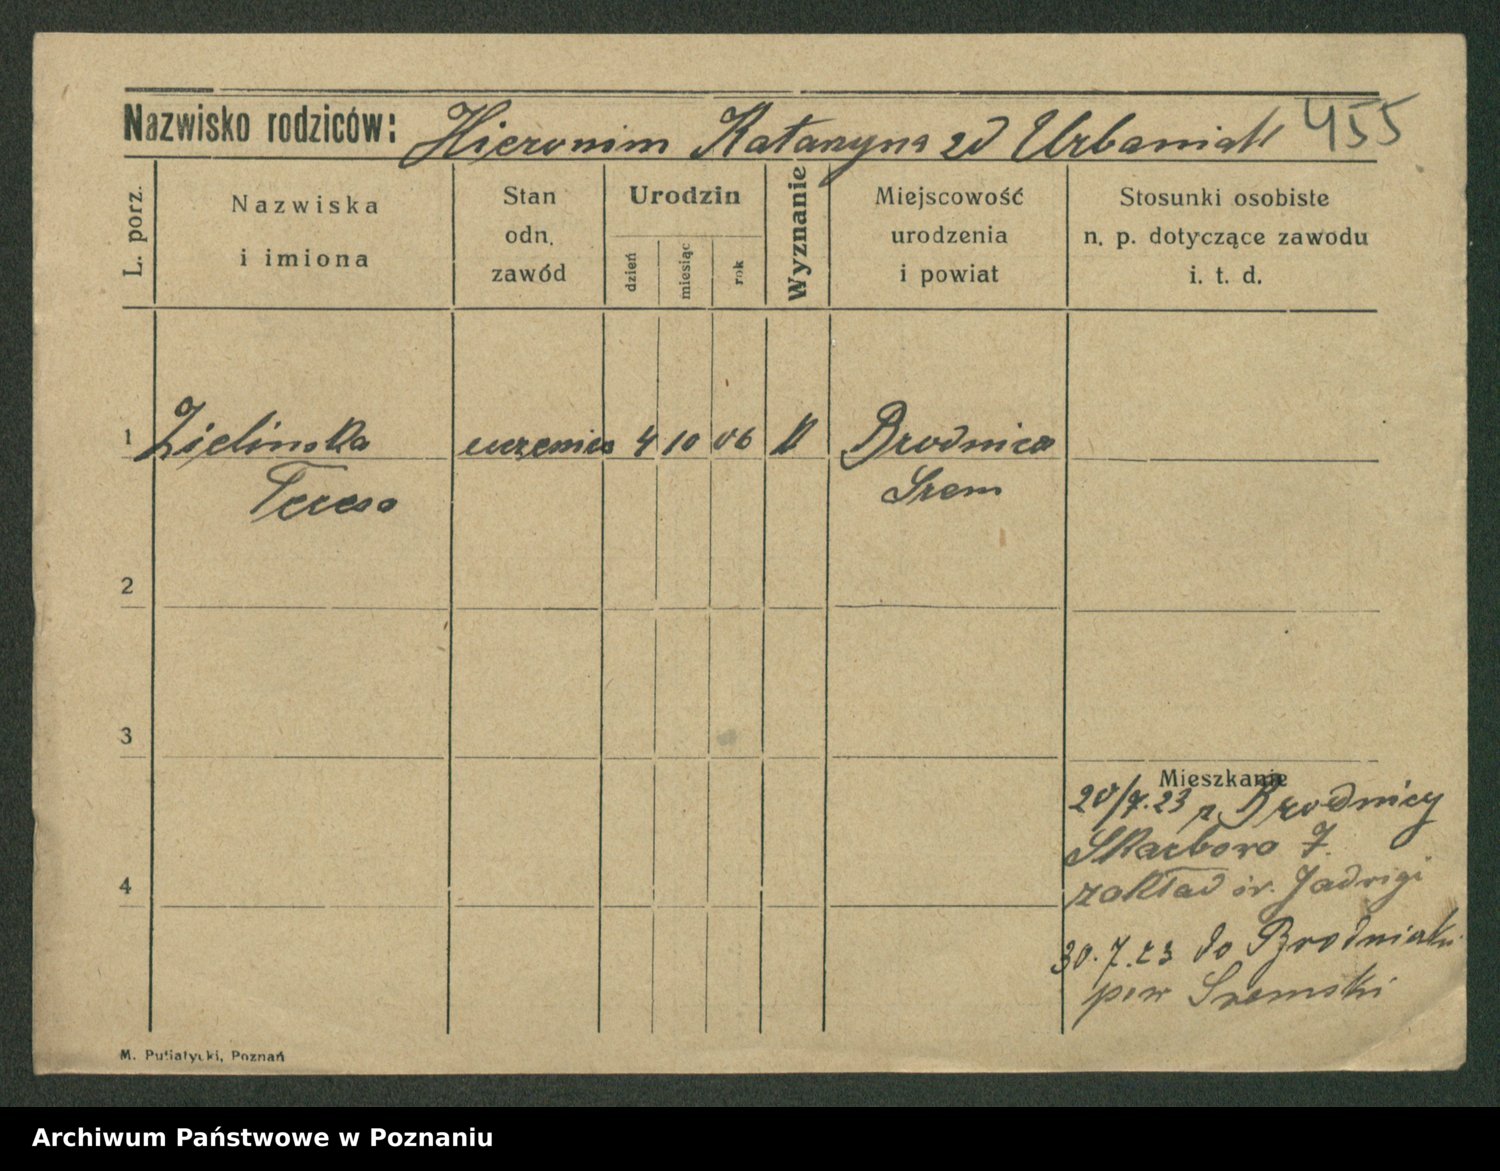 Nazwisko rodziców: Hieronim Katarzyna zd Urbaniak 455
L. porz.
Nazwiska
i imiona
Stan
odn.
zawód
Urodzin
dzień
miesiąc
rok
Wyznanie
Miejscowość
urodzenia
i powiat
Stosunki osobiste
n. p. dotyczące zawodu
i. t. d.
1 Zielinska uczenica 4 10 06 K Brodnica
Teresa Srem
2
3
Mieszkanie
20/7.23 z Brodnicy
Skarbowa 7.
4 zakład św. Jadwigi
30.7.23 do Brodniaki
pow Sremski
M. Putiatycki, Poznań
Archiwum Państwowe w Poznaniu